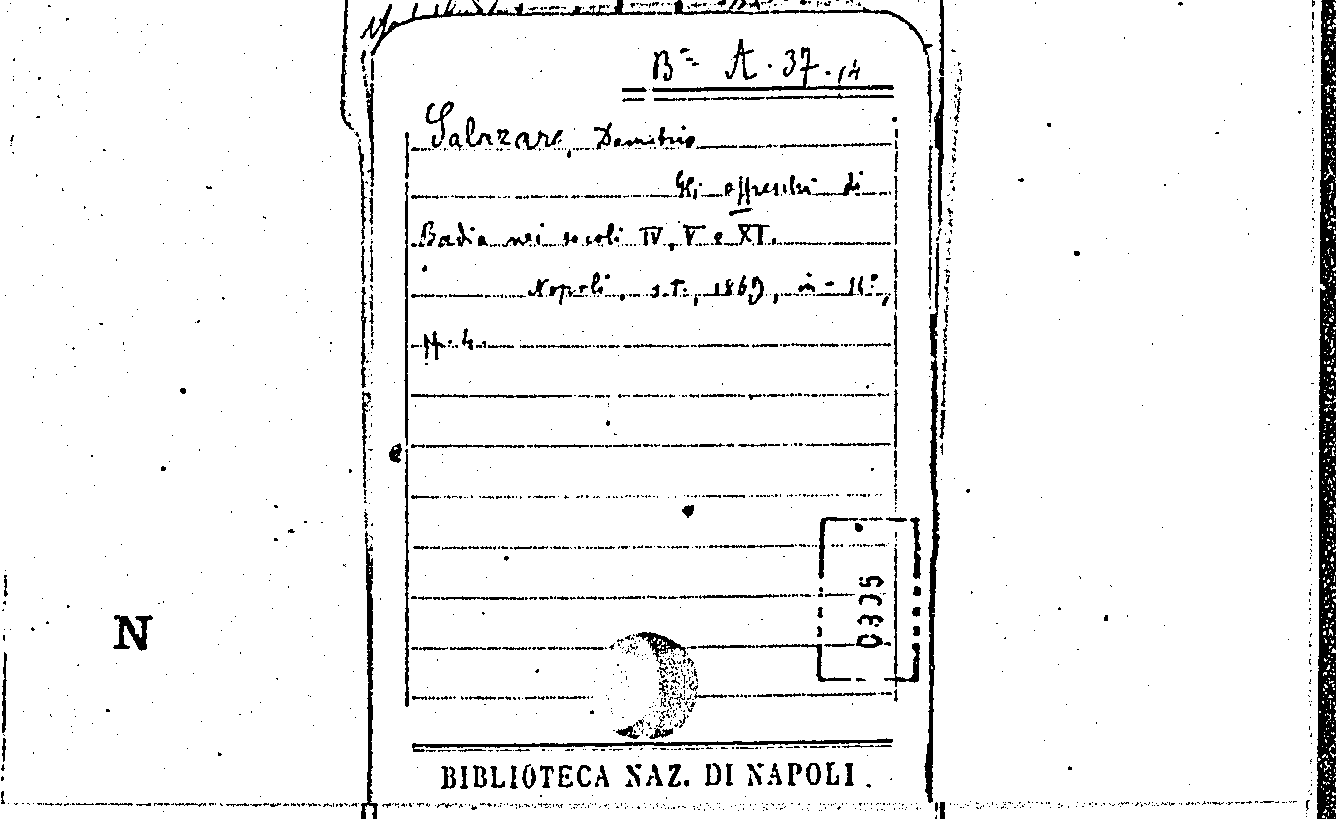 B= A. 37. 14
Salazaro, Demetrio
Gli affreschi di
Badia nei secoli IV, V e XI.
Napoli, s.T., 1869, in-16°,
pp. 4.
e
0305
N
BIBLIOTECA NAZ. DI NAPOLI.